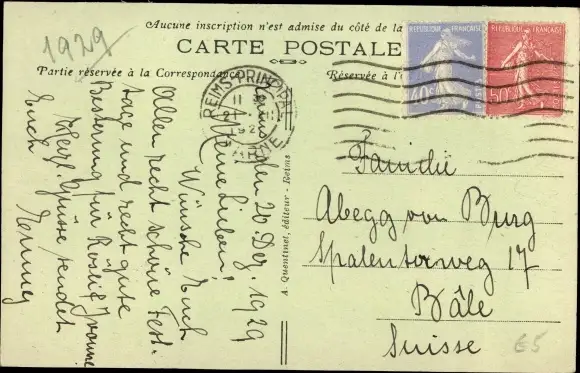 1929
Aucune inscription n'est admise du côté de la
CARTE POSTALE
Partie réservée à la Correspondance
Réservée à l'
RÉPUBLIQUE FRANÇAISE
40c
RÉPUBLIQUE FRANÇAISE
50c
REIMS-PRINCIPAL
MARNE
Reims, den 20. Dez. 1929
Meine Lieben!
Wünsche Euch
Allen recht schöne Fest-
tage und recht gute
Besserung für Rösli & Yvonne.
Herzl. Grüsse sendet
Euch
A. Quentinet, éditeur - Reims
Familie
Abegg von Burg
Spalentorweg 17
Bâle
Suisse
€5